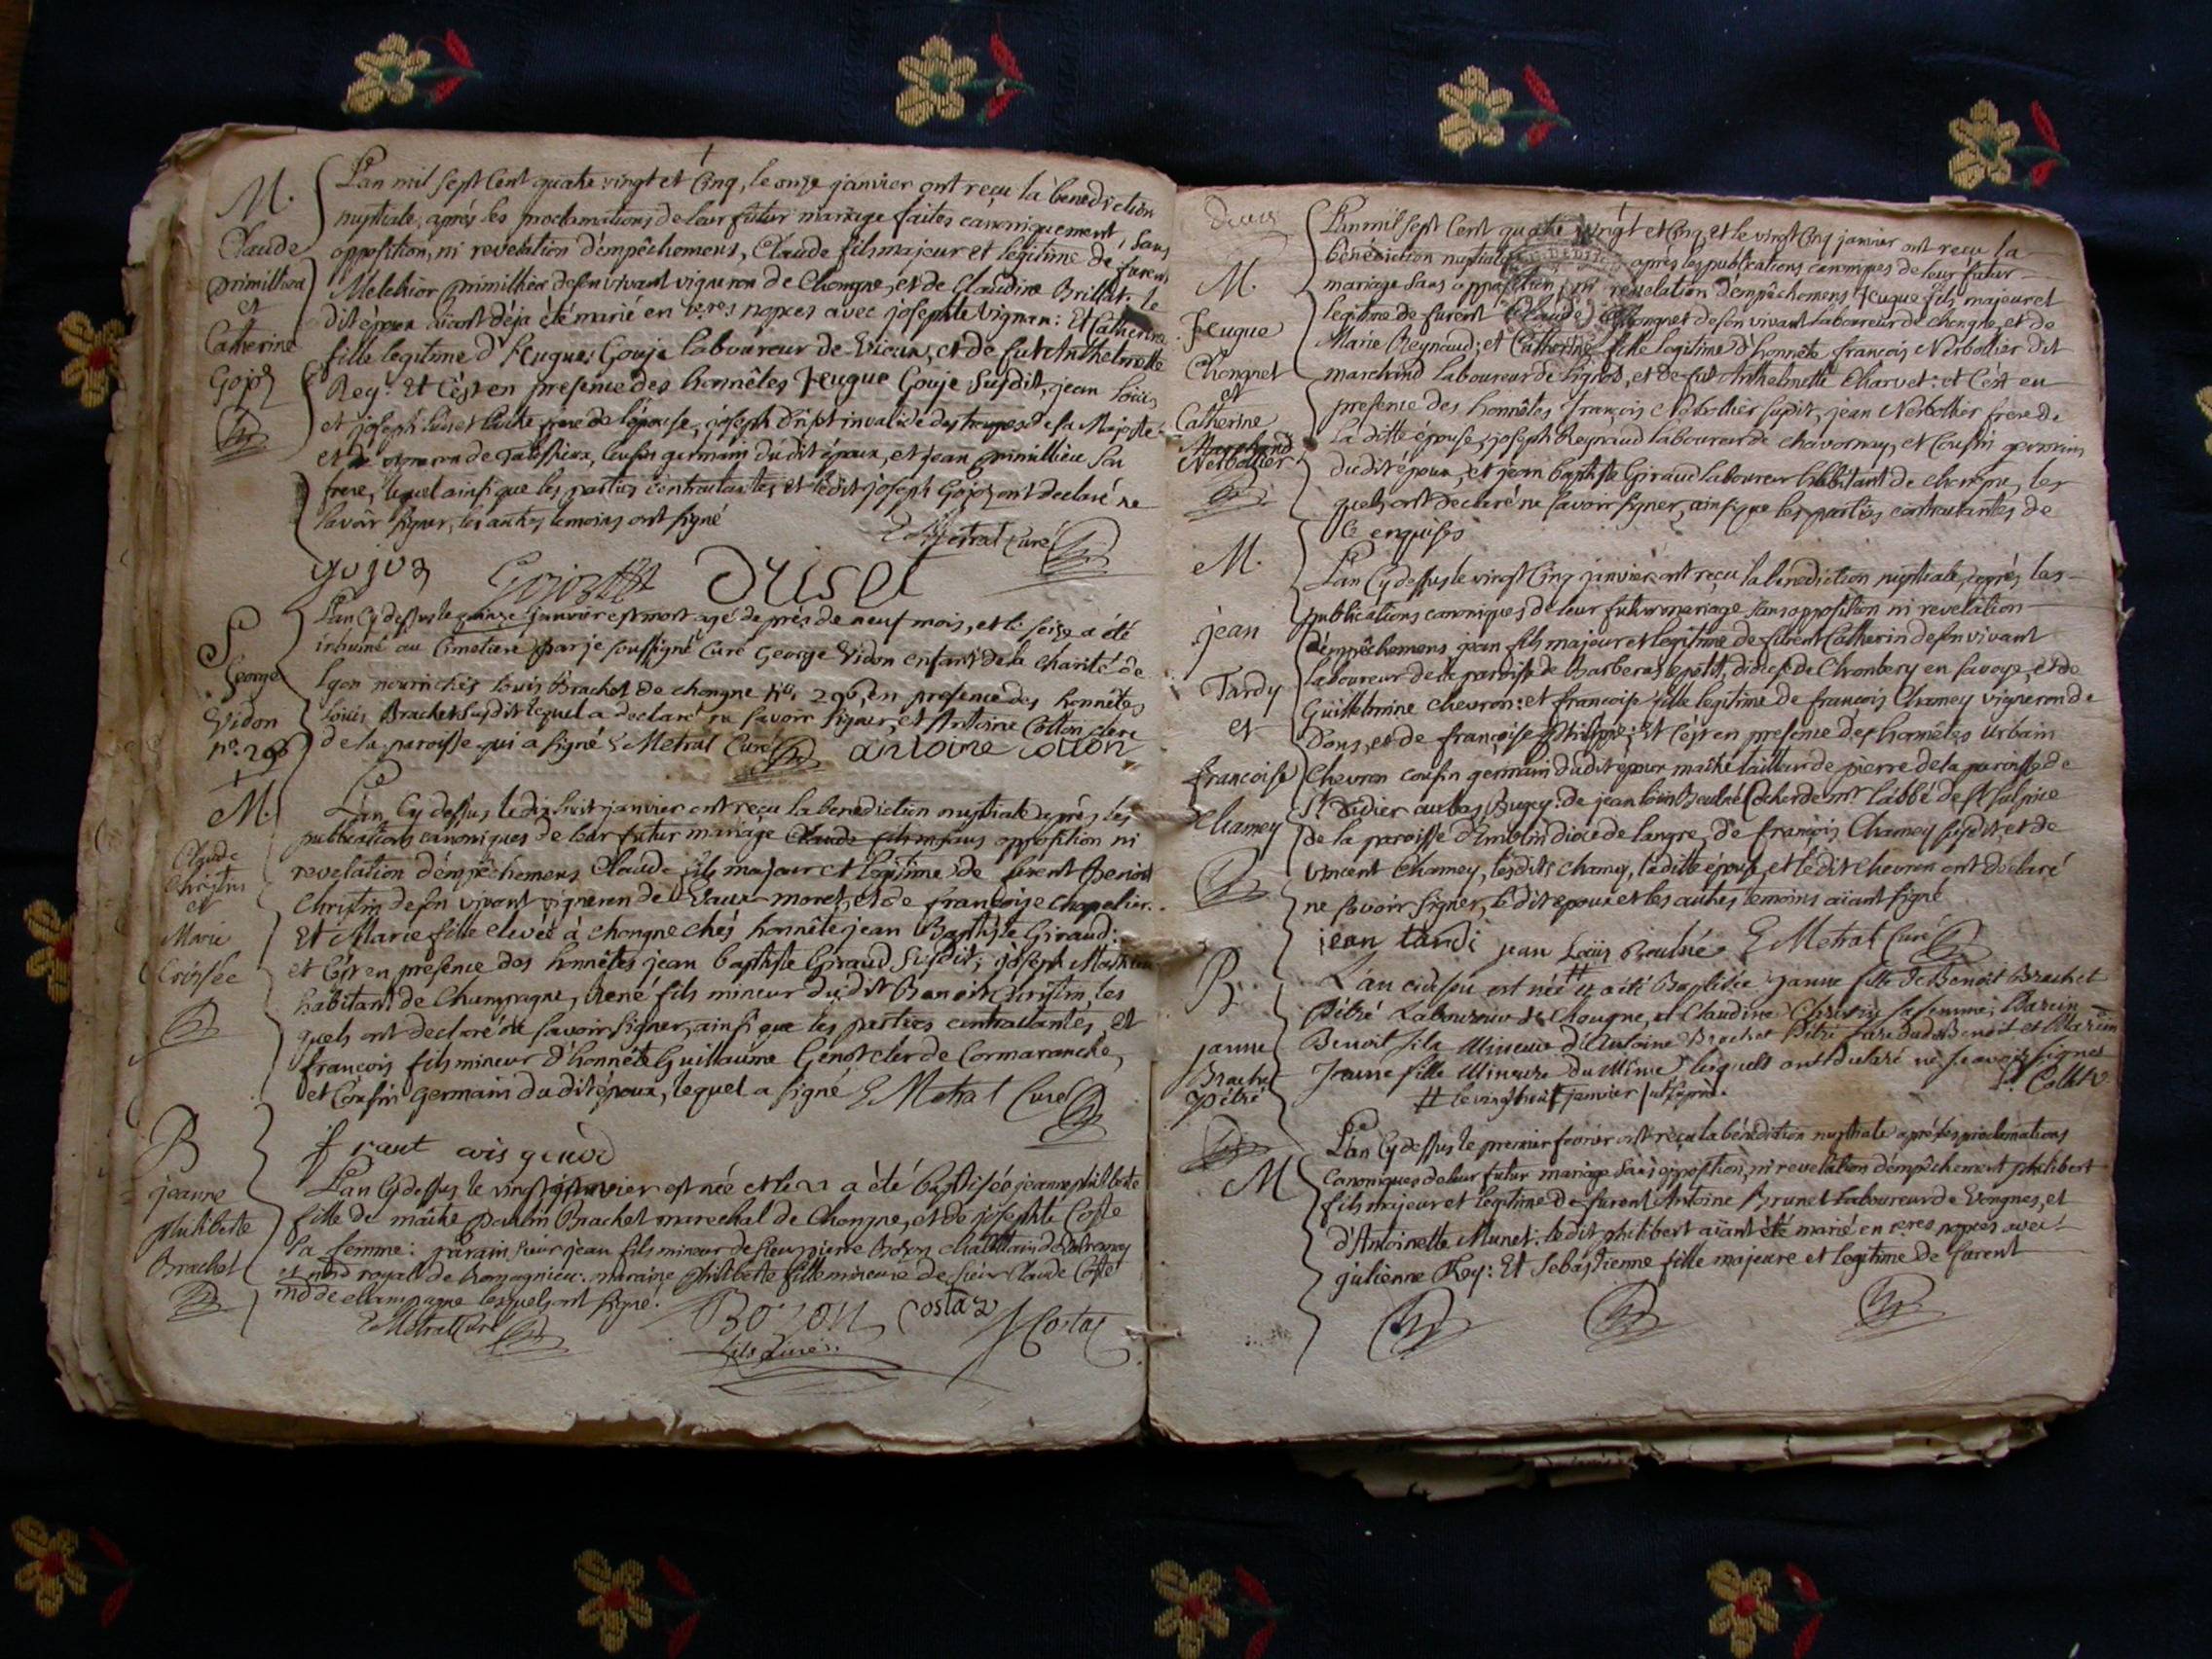 M.
Claude
primillieu
et
Catherine
Gojoz
L'an mil sept Cent quatre vingt et Cinq, le onze janvier ont reçu la benediction
nuptiale, après les proclamations de leur futur mariage faites canoniquement, sans
opposition, ni revelation d'empêchemens, Claude fils majeur et legitime de furent
Melchior primillieu de son vivant vigneron de Chongne, et de Claudine Brillat. le
dit époux aiant déja été marié en 1eres nopces avec josephte vignan: Et Catherine
fille legitime d'heugue Gouje laboureur de Vieux, et de fut Anthelmette
Rey: Et C'est en presence des honnêtes heugue Gouje susdit, jean Loüis
et joseph frere de l'épouse, joseph Driset invalide des troupes de sa Majesté
et vigneron de Cousin germain dudit époux, et jean primillieu son
frere, lequel ainsi que les parties contractantes, et ledit joseph Gojoz ont declaré ne
savoir signer, les autres temoins ont signé
E Metrat Curé
gojoz Drisel
S
George
Vidon
n°. 296
L'an Cy dessus le quinze janvier est mort agé de près de neuf mois, et le seize a été
inhumé au Cimetiere par je soussigné Curé George Vidon enfant de la Charité de
Lyon nourri chés Loüis Brachet de chongne n°. 296, en presence des honnêtes
Loüis Brachet susdit lequel a declaré ne savoir signer, et Antoine Cotton clerc
de la paroisse qui a signé E Metrat Curé antoine coton
M.
Claude
Christin
et
Marie
L'an Cy dessus le dix huit janvier ont reçu la benediction nuptiale après les
publications canoniques de leur futur mariage Claude fils m sans opposition ni
revelation d'empêchemens Claude fils majeur et legitime de furent Benoit
Christin de son vivant vigneron de Vaux-moret, et de françoise chapelier.
Et Marie fille elevée à chongne chés honnête jean Baptiste Giraud:
et C'est en presence des honnêtes jean baptiste Giraud susdit; joseph
habitant de Champagne, René fils mineur dudit Benoit Christin, les
quels ont declaré ne savoir signer, ainsi que les parties contractantes, et
françois fils mineur d'honnête Guillaume Genod clerc de Cormaranche,
et Cousin germain dudit époux, lequel a signé E Metrat Curé
B
jeanne
philiberte
Brachet
L'an Cy dessus le vingt janvier est née et le 21 a été baptisée jeanne philiberte
fille de maître Paulin Brachet marechal de Chongne, et de josephte Coste
sa femme: parain sieur jean fils mineur de sieur pierre Bozon chatellain de
et nord royal de Romagnieu. maraine philiberte fille mineure de sieur Claude Coste
md de champagne lesquels ont signé.
E Metrat Curé Bozon costaz Costaz
fils
M.
heugue
Chongnet
et
Catherine
Marchand
Nerbollier
L'an mil sept Cent quatre vingt et Cinq, et le vingt Cinq janvier ont reçu la
bénédiction nuptiale après les publications canoniques de leur futur
mariage sans opposition, ni revelation d'empêchemens heugue fils majeur et
legitime de furent Claude Chongnet de son vivant laboureur de chongne, et de
Marie Reynaud; et Catherine fille legitime d'honnête françois Nerbollier dit
marchand laboureur de Lignod, et de fut Anthelmette Charvet: et C'est en
presence des honnêtes françois Nerbollier susdit, jean Nerbollier frere de
la ditte épouse, joseph Reynaud laboureur de chavornay, et Cousin germain
dudit époux, et jean baptiste Giraud laboureur habitant de chongne, les
quels ont declaré ne savoir signer, ainsi que les parties contractantes de
ce enquises
M.
jean
Tardy
et
françoise
Chamey
L'an Cy dessus le vingt Cinq janvier ont reçu la benediction nuptiale, après les
publications canoniques de leur futur mariage sans opposition ni revelation
d'empêchemens jean fils majeur et legitime de furent Catherin de son vivant
laboureur de la paroisse de Barberas le petit, diocese de Chambery en savoye, et de
Guillelmine Chevron: et françoise fille legitime de françois Chamey vigneron de
Dons, et de françoise Philippe; Et C'est en presence des honnêtes Urbain
Chevron cousin germain dudit epoux maître tailleur de pierre de la paroisse de
St Didier au bas Bugey: de jean loüis Beulné Cocher de mr. l'abbé de St sulpice
de la paroisse d'Emblin diocese de langre, de françois Chamey susdit et de
vincent Chamey, lesdits chamey, la ditte épouse, et le dit Chevron ont declaré
ne savoir signer, le dit epoux et les autres temoins aiant signé
jean tardi jean Loüis Beulné E Metrat Curé
B.
janne
Brachet
Pétré
L'an cidessu est née # et a été Baptisée janne fille de Benoit Brachet
Pétré Laboureur de Chongne, et Claudine Christin sa femme; Parain
Benoit fils Mineur d'Antoine Brachet Pétré frere dudit Benoit et Maraine
Janne fille Mineure du Même lesquels ont declaré ne sçavoir signer
# le vingt huit janvier
M
L'an Cy dessus le premier fevrier ont reçu la bénédiction nuptiale après les proclamations
Canoniques de leur futur mariage sans opposition, ni revelation d'empêchement philibert
fils majeur et legitime de furent Antoine Brunet laboureur de Vongnes, et
d'Antoinette Munet. le dit philibert aïant été marié en 1eres nopces avec
julienne Rey: Et Sebastienne fille majeure et legitime de furent